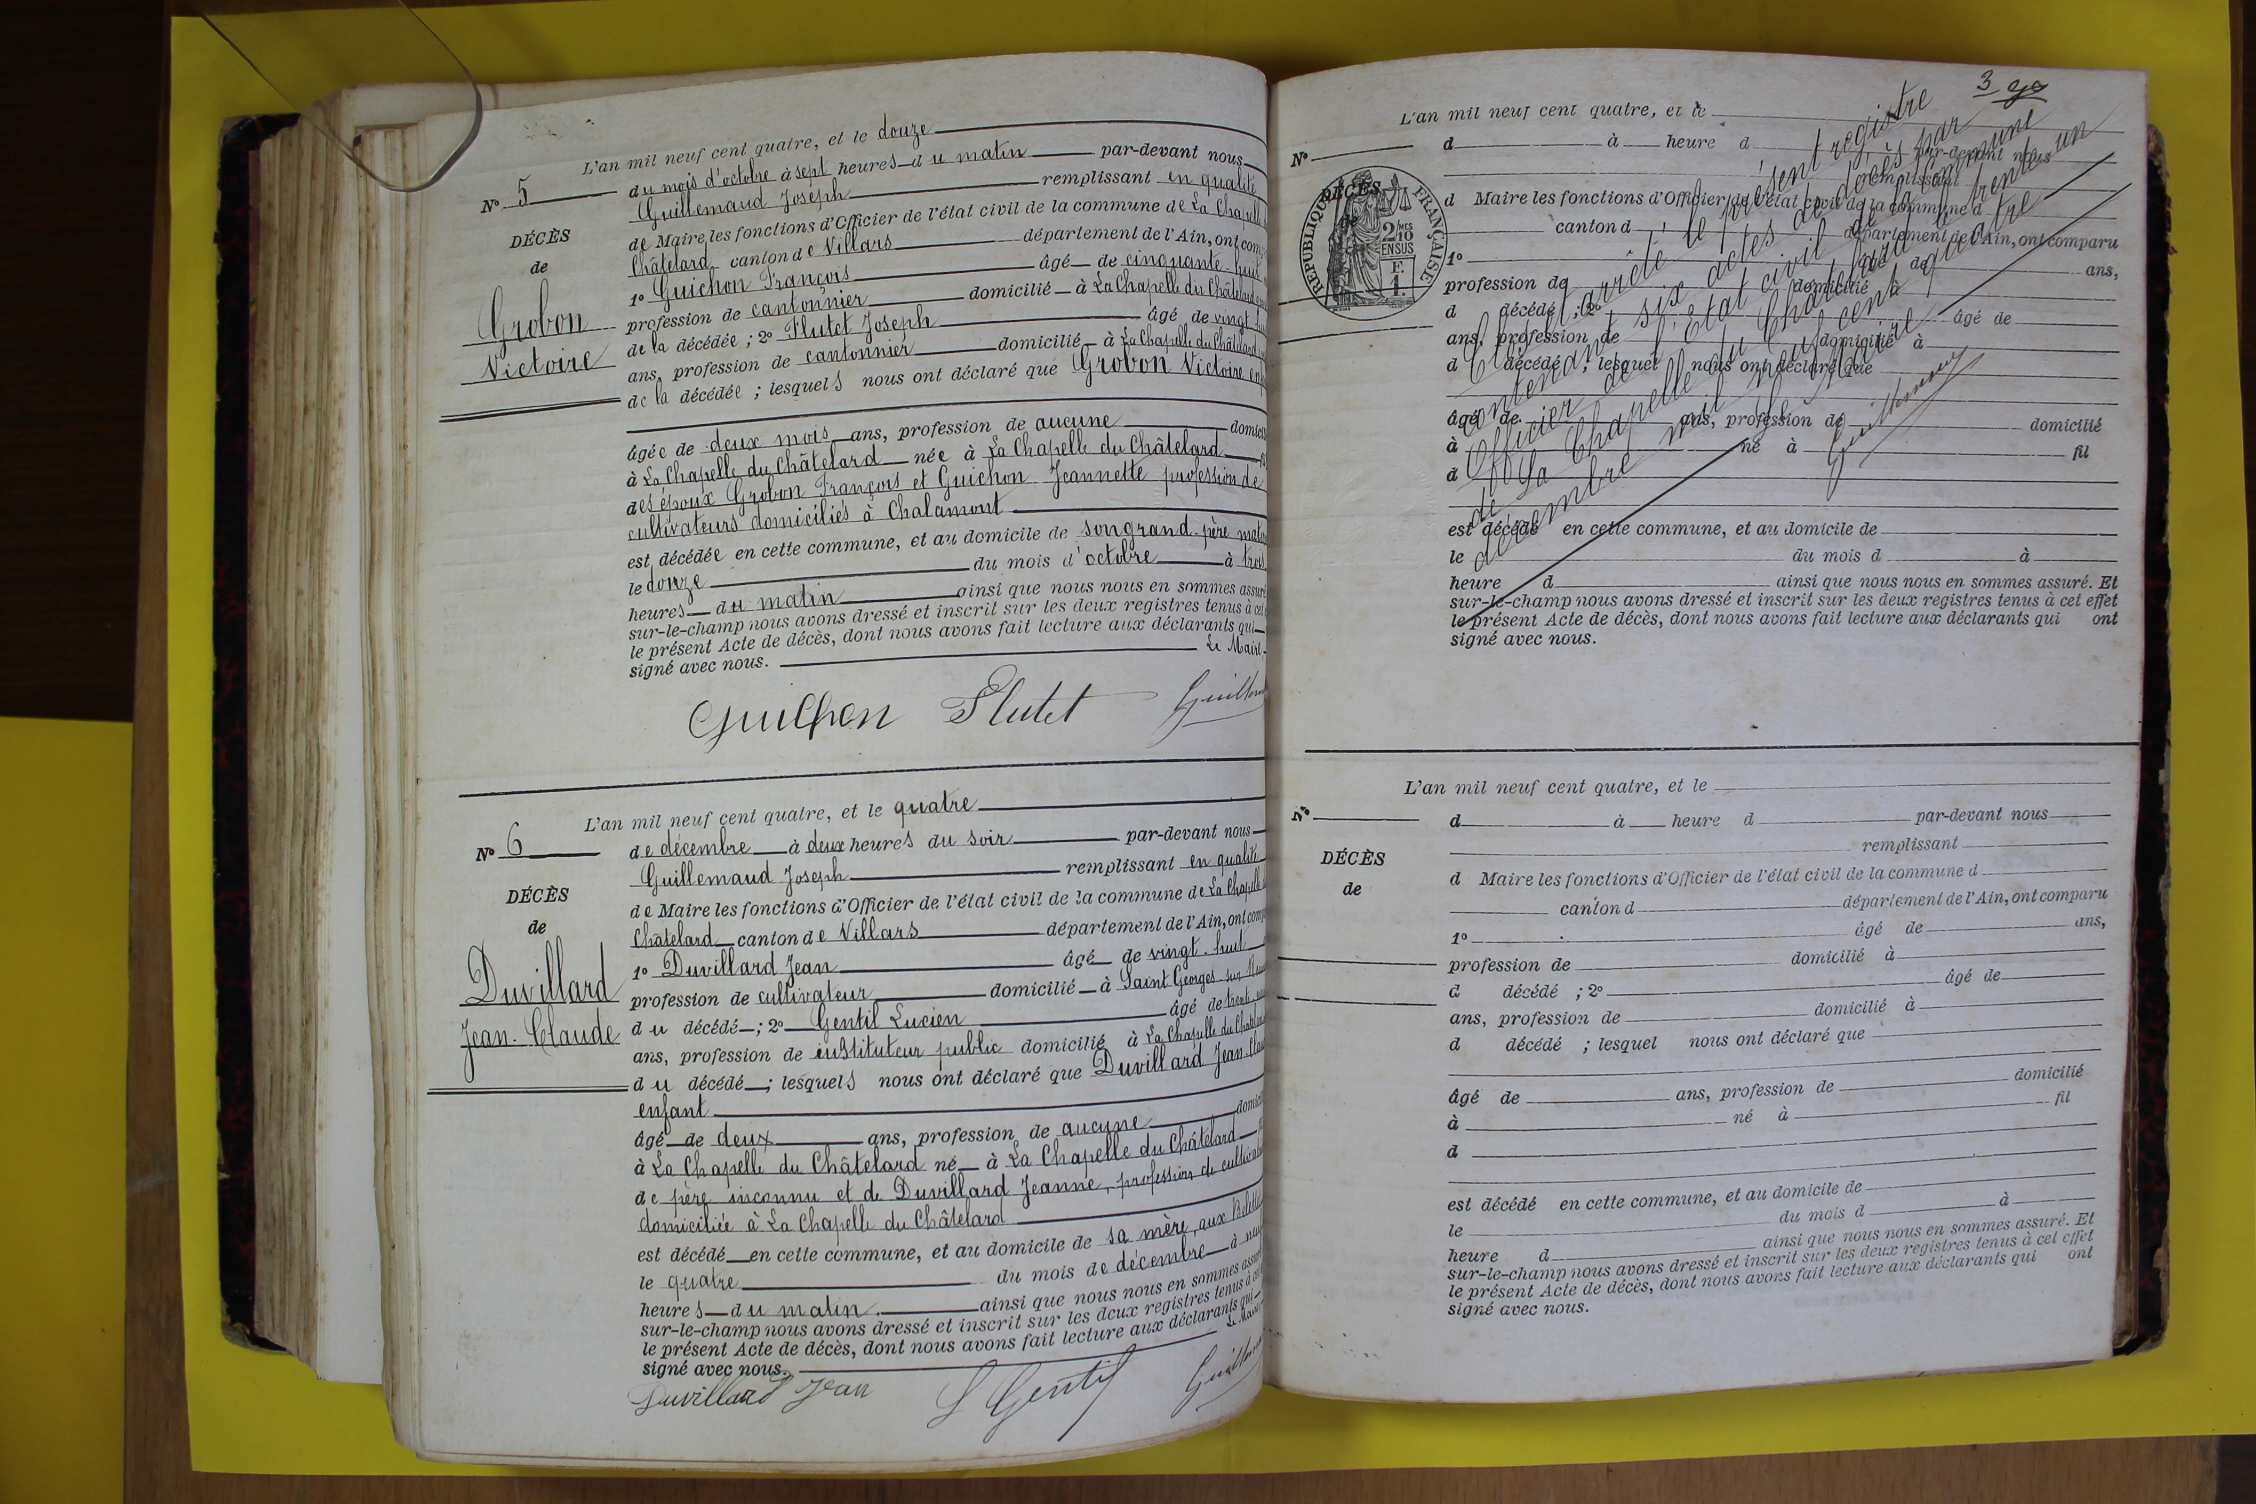 L'an mil neuf cent quatre, et le douze
N° 5
du mois d'octobre à sept heures du matin par-devant nous
Guillemaud Joseph remplissant en qualité
DÉCÈS
de Maire les fonctions d'Officier de l'état civil de la commune de La Chapelle
de
Châtelard canton de Villars département de l'Ain, ont
1° Guichon François âgé de cinquante-huit
Grobon
profession de cantonnier domicilié à La Chapelle du Châtelard
de la décédée ; 2° Flutet Joseph âgé de vingt
Victoire
ans, profession de cantonnier domicilié à La Chapelle du Châtelard
de la décédée ; lesquels nous ont déclaré que Grobon Victoire
âgée de deux mois ans, profession de aucune
à La Chapelle du Châtelard née à La Chapelle du Châtelard
des époux Grobon François et Guichon Jeannette profession de
cultivateurs domiciliés à Chalamont
est décédée en cette commune, et au domicile de son grand-père
le douze du mois d'octobre à trois
heures du matin ainsi que nous nous en sommes
sur-le-champ nous avons dressé et inscrit sur les deux registres tenus à
le présent Acte de décès, dont nous avons fait lecture aux déclarants qui
signé avec nous. Le Maire.
Guichon Flutet
L'an mil neuf cent quatre, et le quatre
N° 6
de décembre à deux heures du soir par-devant nous
Guillemaud Joseph remplissant en qualité
DÉCÈS
de Maire les fonctions d'Officier de l'état civil de la commune de La Chapelle
de
Châtelard canton de Villars département de l'Ain, ont
1° Duvillard Jean âgé de vingt-huit
Duvillard
profession de cultivateur domicilié à Saint Georges sur
Jean-Claude
du décédé ; 2° Gentil Lucien âgé de
ans, profession de instituteur public domicilié à La Chapelle du
du décédé ; lesquels nous ont déclaré que Duvillard Jean
enfant
âgé de deux ans, profession de aucune
à La Chapelle du Châtelard né à La Chapelle du Châtelard
de père inconnu et de Duvillard Jeanne, profession de
domiciliée à La Chapelle du Châtelard
est décédé en cette commune, et au domicile de sa mère, aux
le quatre du mois de décembre à
heures du matin ainsi que nous nous en sommes
sur-le-champ nous avons dressé et inscrit sur les deux registres tenus à
le présent Acte de décès, dont nous avons fait lecture aux déclarants qui
signé avec nous. Le
Duvillard Jean L Gentil
3
L'an mil neuf cent quatre, et le
N° d à heure d par-devant nous
remplissant
DÉCÈS
RÉPUBLIQUE FRANÇAISE
2/10 MES
EN SUS
F.
1.
d Maire les fonctions d'Officier de l'état civil de la commune d
canton d département de l'Ain, ont comparu
1° âgé de ans,
profession de domicilié à
d décédé ; 2° âgé de
ans, profession de domicilié à
d décédé ; lesquel nous ont déclaré que
âgé de ans, profession de domicilié
à né à fil
d
est décédé en cette commune, et au domicile de
le du mois d à
heure d ainsi que nous nous en sommes assuré. Et
sur-le-champ nous avons dressé et inscrit sur les deux registres tenus à cet effet
le présent Acte de décès, dont nous avons fait lecture aux déclarants qui ont
signé avec nous.
Clos et arrêté le présent registre
contenant six actes de décès par
Officier de l'Etat civil
de La Chapelle du Châtelard trente un
décembre mil neuf cent quatre
Le Maire
L'an mil neuf cent quatre, et le
N° d à heure d par-devant nous
remplissant
DÉCÈS
d Maire les fonctions d'Officier de l'état civil de la commune d
de
canton d département de l'Ain, ont comparu
1° âgé de ans,
profession de domicilié à
d décédé ; 2° âgé de
ans, profession de domicilié à
d décédé ; lesquel nous ont déclaré que
âgé de ans, profession de domicilié
à né à fil
d
est décédé en cette commune, et au domicile de
le du mois d à
heure d ainsi que nous nous en sommes assuré. Et
sur-le-champ nous avons dressé et inscrit sur les deux registres tenus à cet effet
le présent Acte de décès, dont nous avons fait lecture aux déclarants qui ont
signé avec nous.